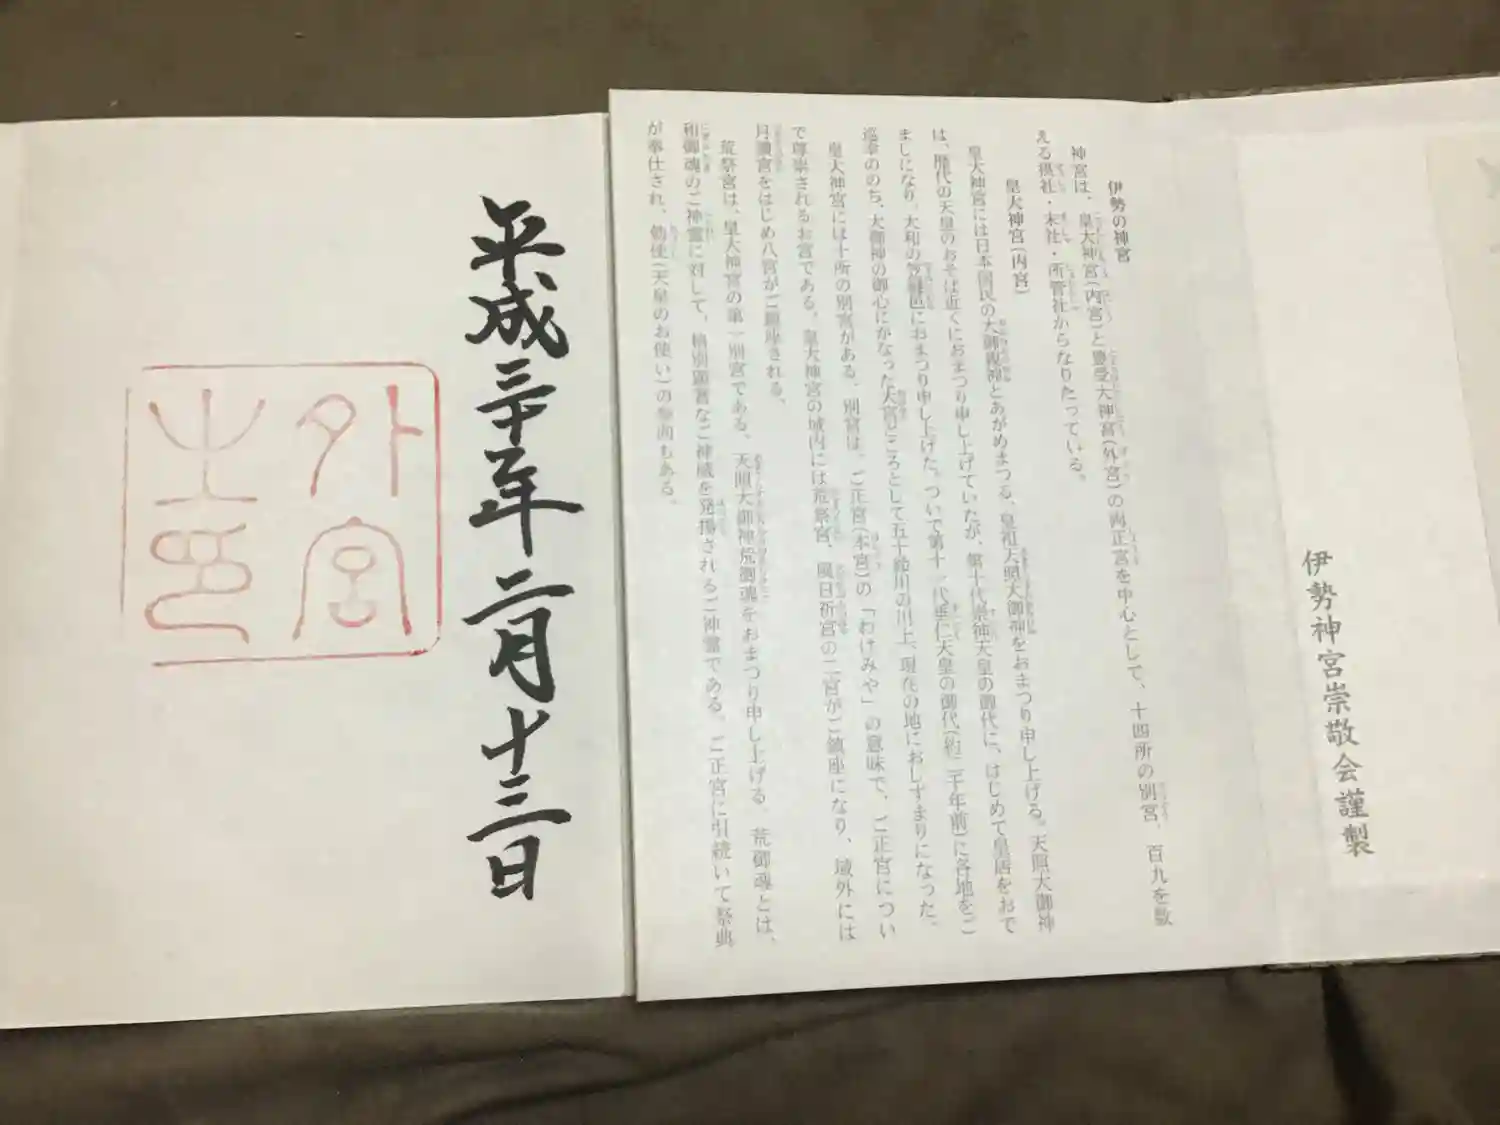 伊勢神宮崇敬会謹製
伊勢の神宮
神宮は、皇大神宮(内宮)と豊受大神宮(外宮)の両正宮を中心として、十四所の別宮、百九を数
える摂社・末社・所管社からなりたっている。
皇大神宮(内宮)
皇大神宮には日本国民の大御親神とあがめまつる、皇祖天照大御神をおまつり申し上げる。天照大御神
は、歴代の天皇のおそば近くにおまつり申し上げていたが、第十代崇神天皇の御代に、はじめて皇居をおで
ましになり、大和の笠縫邑におまつり申し上げた。ついで第十一代垂仁天皇の御代(約二千年前)に各地をご
巡幸ののち、大御神の御心にかなった大宮どころとして五十鈴川の川上、現在の地におしずまりになった。
皇大神宮には十所の別宮がある。別宮は、ご正宮(本宮)の「わけみや」の意味で、ご正宮につい
で尊崇されるお宮である。皇大神宮の域内には荒祭宮、風日祈宮の二宮がご鎮座になり、域外には
月讀宮をはじめ八宮がご鎮座される。
荒祭宮は、皇大神宮の第一別宮である、天照大御神荒御魂をおまつり申し上げる。荒御魂とは、
和御魂のご神霊に対して、格別顕著なご神威を発揚されるご神霊である。ご正宮に引続いて祭典
が奉仕され、勅使(天皇のお使い)の参向もある。
平成三十年二月十三日
外宮
之印